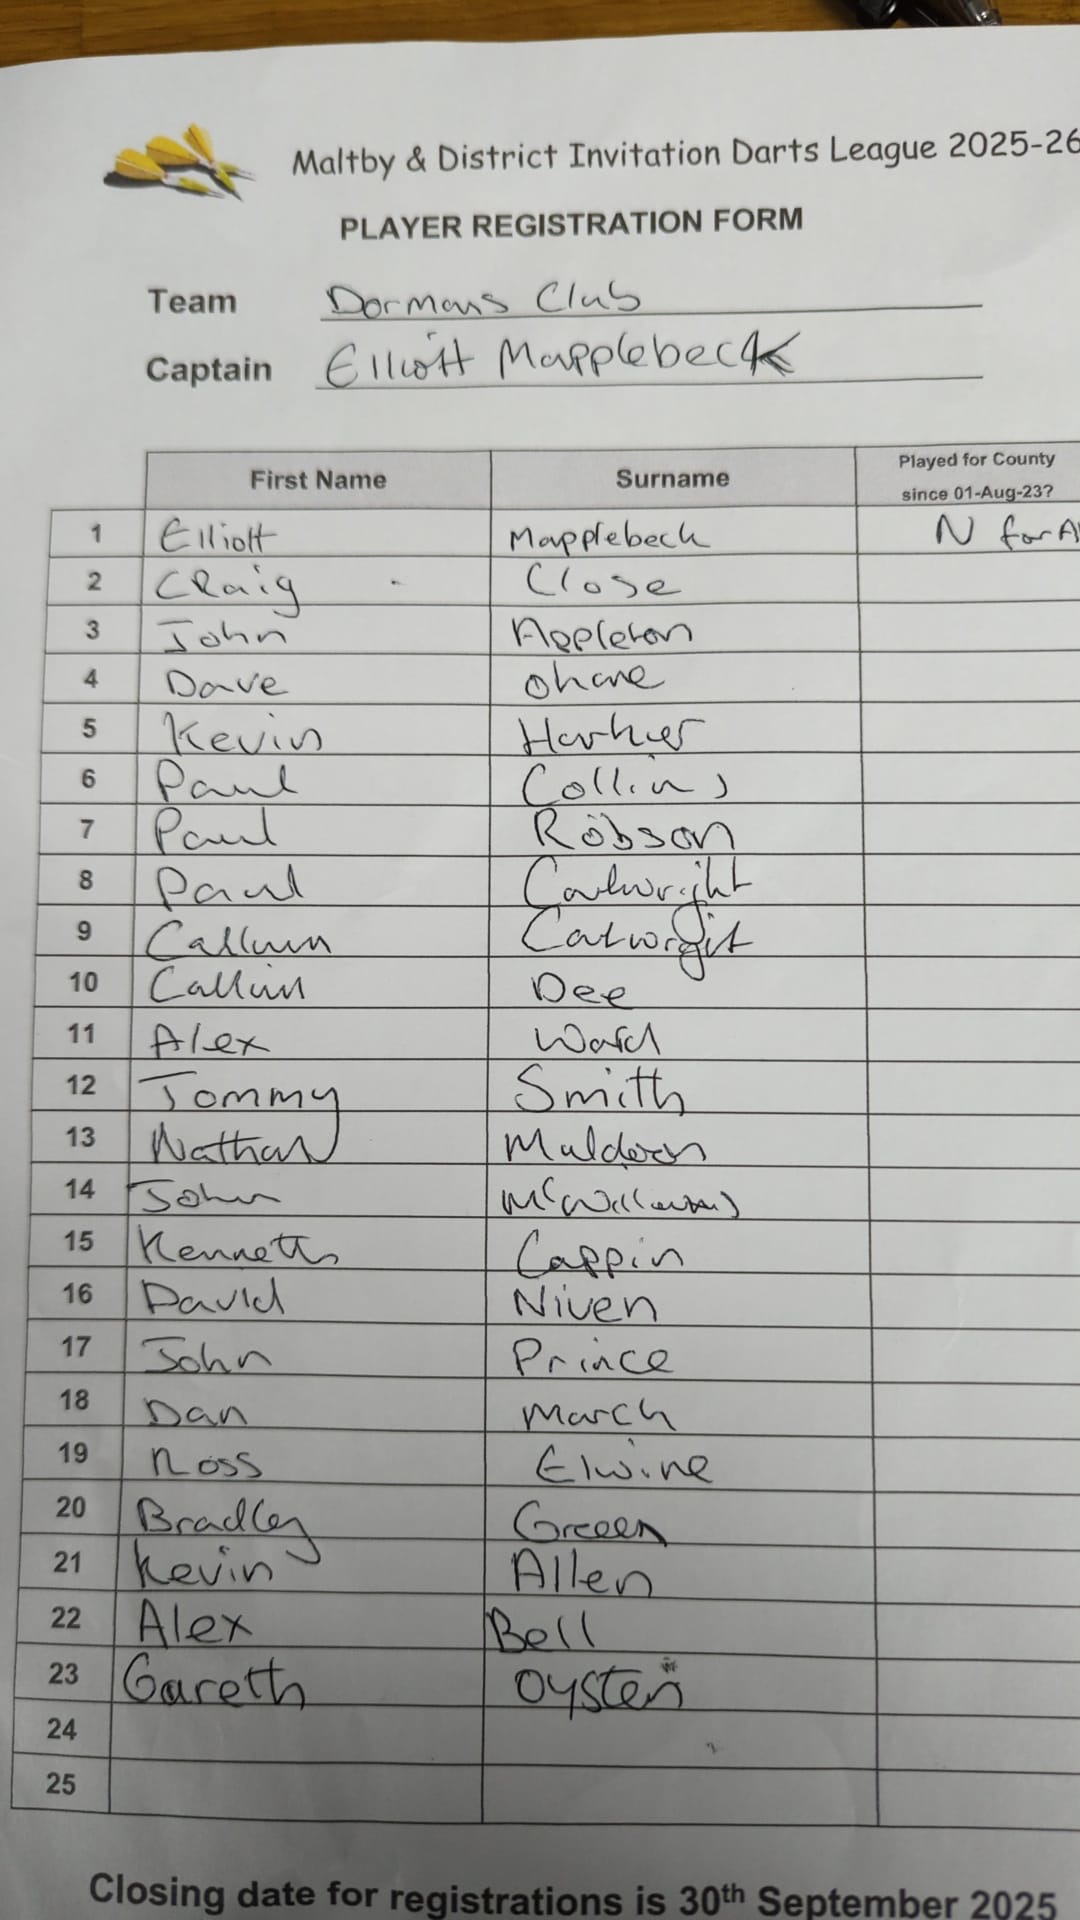 Maltby & District Invitation Darts League 2025-26
PLAYER REGISTRATION FORM
Team Dormans Club
Captain Elliott Mapplebeck
First Name Surname Played for County since 01-Aug-23?
1 Elliott Mapplebeck N for
2 Craig Close
3 John Appleton
4 Dave Ohare
5 Kevin Harker
6 Paul Collins
7 Paul Robson
8 Paul Cartwright
9 Callum
10 Callum Dee
11 Alex Ward
12 Tommy Smith
13 Nathan Muldoon
14 John McWilliams
15 Kenneth Cappin
16 David Niven
17 John Prince
18 Dan March
19 Ross Elwine
20 Bradley Green
21 Kevin Allen
22 Alex Bell
23 Gareth Oysten
24
25
Closing date for registrations is 30th September 2025